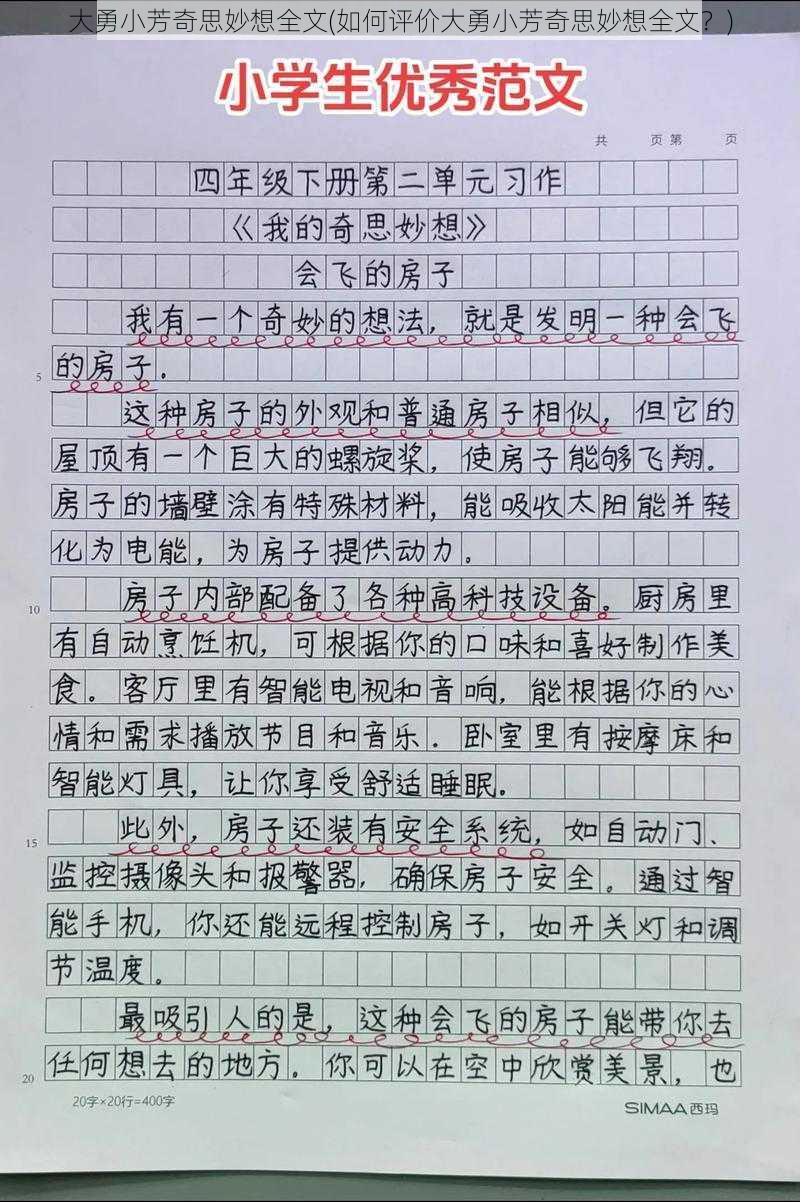 大勇小芳奇思妙想全文(如何评价大勇小芳奇思妙想全文？)
小学生优秀范文
共 页 第 页
四年级下册第二单元习作
《我的奇思妙想》
会飞的房子
我有一个奇妙的想法，就是发明一种会飞
5 的房子.
这种房子的外观和普通房子相似，但它的
屋顶有一个巨大的螺旋桨，使房子能够飞翔.
房子的墙壁涂有特殊材料，能吸收太阳能并转
化为电能，为房子提供动力。
10 房子内部配备了各种高科技设备。厨房里
有自动烹饪机，可根据你的口味和喜好制作美
食。客厅里有智能电视和音响，能根据你的心
情和需求播放节目和音乐.卧室里有按摩床和
智能灯具，让你享受舒适睡眠.
15 此外，房子还装有安全系统，如自动门、
监控摄像头和报警器，确保房子安全。通过智
能手机，你还能远程控制房子，如开关灯和调
节温度。
最吸引人的是，这种会飞的房子能带你去
20 任何想去的地方.你可以在空中欣赏美景，也
20字×20行=400字 SIMAA西玛